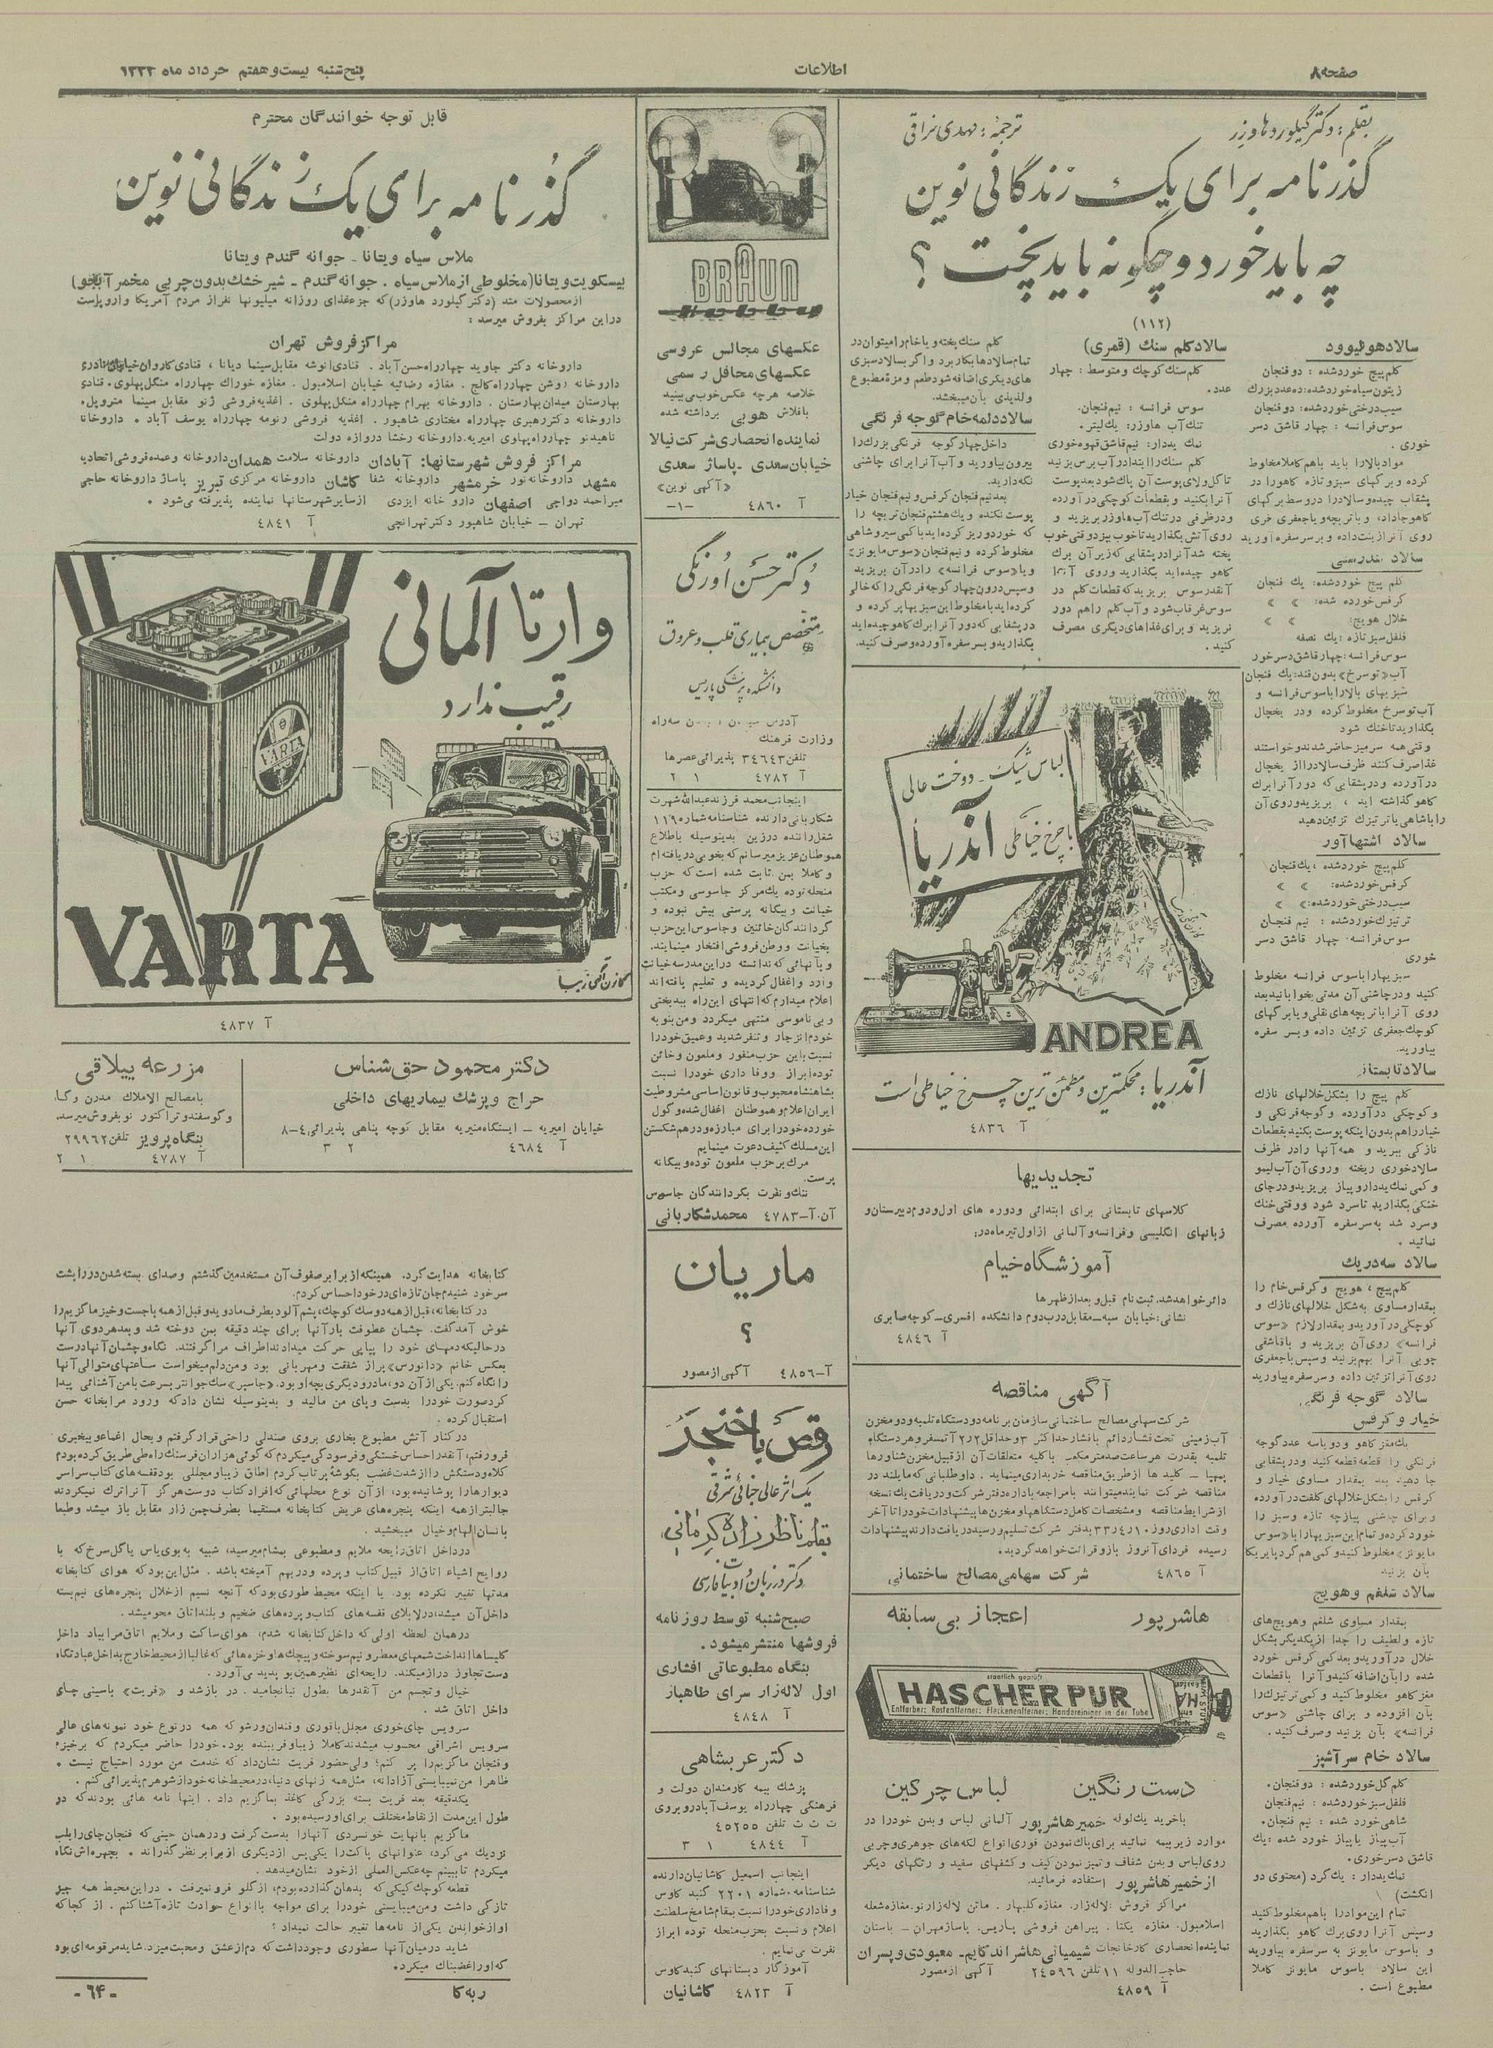 صفحه ۸
اطلاعات
پنج‌شنبه بیست و هفتم خرداد ماه ۱۳۳۳
بقلم : دکتر گیلورد هاوزر
ترجمه : مهدی نراقی
گذرنامه برای یک زندگانی نوین
چه باید خورد و چگونه باید پخت ؟
(۱۱۲)
سالاد هولیوود
کلم پیچ خورد شده : دو فنجان
زیتون سیاه خورد شده : ده عدد بزرگ
سیب درختی خورد شده : دو فنجان
سوس فرانسه : چهار قاشق دسر
خوری .
مواد بالا را باید باهم کاملا مخلوط
کرده و برگهای سبز و تازه کاهو را در
بشقاب چیده و سالاد را در وسط برگهای
کاهو جا داد، و با تربچه و یا جعفری خری
روی آنرا زینت داده و بر سر سفره آورید
سالاد تندرستی
کلم پیچ خورد شده : یك فنجان
کرفس خورده شده : » »
خلال هویج : » »
فلفل سبز تازه : یك نصفه
سوس فرانسه : چهار قاشق دسر خور
آب «توسرخ» بدون قند : یك فنجان
سبزیهای بالا را با سوس فرانسه و
آب توسرخ مخلوط کرده و در یخچال
بگذارید تا خنك شود
وقتی همه سر میز حاضر شدند و خواستند
غذا صرف کنند ظرف سالاد را از یخچال
درآورده و در بشقابی که دور آنرا برك
کاهو گذاشته اید ، بریزید و روی آن
را با شاهی یا ترتیزك تزئین دهید
سالاد اشتها آور
کلم پیچ خورد شده : یك فنجان
کرفس خورد شده : » »
سیب درختی خورد شده : » »
ترتیزك خورد شده : نیم فنجان
سوس فرانسه : چهار قاشق دسر
خوری
سبزیها را با سوس فرانسه مخلوط
کنید و در چاشنی آن مدتی بخوابانید بعد
روی آنرا با تربچه های نقلی و یا برگهای
کوچك جعفری تزئین داده و بسر سفره
بیاورید.
سالاد تابستانی
کلم پیچ را بشکل خلالهای نازك
و کوچکی درآورده و گوجه فرنگی و
خیار را هم بدون اینکه پوست بکنید بقطعات
نازکی ببرید و همه آنها را در ظرف
سالاد خوری ریخته و روی آن آب لیمو
و کمی نمك یددار و پیاز بریزید و در جای
خنکی بگذارید تا سرد شود و وقتی خنك
و سرد شد به سر سفره آورده مصرف
نمائید .
سالاد سه دریك
کلم پیچ ، هویج و کرفس خام را
بمقدار مساوی به شکل خلالهای نازك و
کوچکی درآورید و بمقدار لازم «سوس
فرانسه» روی آن بریزید و با قاشقی
چوبی آنرا بهم بزنید و سپس با جعفری
روی آنرا تزئین داده و سر سفره بیاورید
سالاد گوجه فرنگی
خیار و کرفس
سالاد شلغم و هویج
بمقدار مساوی شلغم و هویج های
تازه و لطیف را جدا از یکدیگر بشکل
خلال درآورید و بعد کمی کرفس خورد
شده را بآن اضافه کنید و آنرا با قطعات
مغز کاهو مخلوط کنید و کمی ترتیزك را
بآن افزوده و برای چاشنی «سوس
فرانسه» بآن بزنید و صرف کنید.
سالاد خام سر آشپز
کلم گل خورد شده : دو فنجان.
فلفل سبز خورد شده : نیم فنجان
شاهی خورد شده : نیم فنجان.
آب پیاز یا پیاز خورد شده : یك
قاشق دسر خوری.
نمك یددار : یك گرد (محتوی دو
انگشت)
تمام این مواد را باهم مخلوط کنید
وسپس آنرا روی برك کاهو بگذارید
و با سوس مایونز به سر سفره بیاورید
این سالاد با سوس مایونز کاملا
مطبوع است .
سالاد کلم سنك (قمری)
کلم سنك کوچك و متوسط : چهار
عدد.
سوس فرانسه : نیم فنجان.
تنك آب هاوزر : یك لیتر.
نمك یددار : نیم قاشق قهوه خوری
کلم سنك را ابتدا در آب برس بزنید
تا گل و لای پوست آن پاك شود بعد پوست
آنرا بکنید و بقطعات کوچکی درآورده
و در ظرفی در تنك آب هاوزر بریزید و
روی آتش بگذارید تا خوب بپزد وقتی خوب
پخته شد آنرا در بشقابی که زیر آن برك
کاهو چیده اید بگذارید و روی آنرا
آنقدر سوس بریزید که قطعات کلم در
سوس غرقاب شود و آب کلم را هم دور
نریزید و برای غذاهای دیگری مصرف
کنید .
کلم سنك پخته و یا خام را میتوان در
تمام سالادها بکار برد و اگر بسالاد سبزی
های دیگری اضافه شود طعم و مزه مطبوع
و لذیذی بآن میبخشد.
سالاد دلمه خام گوجه فرنگی
داخل چهار گوجه فرنگی بزرك را
بیرون بیاورید و آب آنرا برای چاشنی
نگه دارید.
بعد نیم فنجان کرفس و نیم فنجان خیار
پوست نکنده و یك هشتم فنجان تربچه را
که خورد و ریز کرده اید با کمی سیر و شاهی
مخلوط کرده و نیم فنجان «سوس مایونز»
و یا «سوس فرانسه» را در آن بریزید
و سپس درون چهار گوجه فرنگی را که خالی
کرده اید با مخلوط این سبزیها پر کرده و
در بشقابی که دور آنرا برك کاهو چیده اید
بگذارید و بسر سفره آورده و صرف کنید.
لباس شیك - دوخت عالی
با چرخ خیاطی آندریا
ANDREA
آندریا : محکمترین و مطمئن ترین چرخ خیاطی است
آ ۴۸۳۶
تجدیدیها
کلاسهای تابستانی برای ابتدائی و دوره های اول و دوم دبیرستان و
زبانهای انگلیسی و فرانسه و آلمانی از اول تیر ماه در :
آموزشگاه خیام
دائر خواهد شد. ثبت نام قبل و بعد از ظهرها
نشانی : خیابان سپه - مقابل درب دوم دانشکده افسری - کوچه صابری
آ ۴۸۴۶
آگهی مناقصه
شرکت سهامی مصالح ساختمانی سازمان برنامه دو دستگاه تلمبه و دو مخزن
آب زمینی تحت فشار دائم با فشار حداکثر ۳ و حداقل ۲ر۲ آتمسفر و هر دستگاه
تلمبه بقدرت هر ساعت صد متر مکعب با کلیه متعلقات آن از قبیل مخزن شناورها
پمپها - کلید ها از طریق مناقصه خریداری مینماید . داوطلبانی که مایلند در
مناقصه شرکت نمایند میتوانند با مراجعه باداره دفتر شرکت و دریافت یك نسخه
از شرایط مناقصه و مشخصات کامل دستگاهها و مخزن ها پیشنهادات خود را تا آخر
وقت اداری روز ۱۰ر۴ر۳۳ بدفتر شرکت تسلیم و رسید دریافت دارند پیشنهادات
رسیده فردای آنروز باز و قرائت خواهد گردید.
آ ۴۸۶۵ شرکت سهامی مصالح ساختمانی
هاشر پور اعجاز بی سابقه
staatlich geprüft
HASCHER PUR
Entfarber; Rostentferner; Fleckenentferner; Handereiniger in der Tube
دست رنگین لباس چرکین
با خرید یك لوله خمیر هاشر پور آلمانی لباس و بدن خود را در
موارد زیر بیمه نمائید برای پاك نمودن فوری انواع لکه های جوهری و چربی
روی لباس و بدن شفاف و تمیز نمودن کیف و کفشهای سفید و رنگهای دیگر
از خمیر هاشر پور استفاده فرمائید.
مراکز فروش : لاله زار، مغازه گلبهار . ماتن لاله زار نو. مغازه شعله
اسلامبول، مغازه یکتا . پیراهن فروشی پاریس، پاساژ مهران - باستان
نماینده انحصاری کارخانجات شیمیائی هاشر اند کایم - معبودی و پسران
حاجب الدوله ۱۱ تلفن ۲۴۵۹۶ آگهی از مصور
آ ۴۸۵۹
BRAUN
hobby
عکسهای مجالس عروسی
عکسهای محافل رسمی
خلاصه هر چه عکس خوب می بینید
با فلاش هوبی برداشته شده
نماینده انحصاری شرکت نیالا
خیابان سعدی - پاساژ سعدی
«آگهی نوین»
آ ۴۸۶۰ -۱-
دکتر حسن اورنگی
متخصص بیماری قلب و عروق
دانشکده پزشکی پاریس
وزارت فرهنك
تلفن ۳۴۶۴۳ پذیرائی عصرها
آ ۴۷۸۲ ۱ ۲
اینجانب محمد فرزند عبدالله شهرت
شکاربانی دارنده شناسنامه شماره ۱۱۹
شغل راننده درزین بدینوسیله باطلاع
هموطنان عزیز میرسانم که بخوبی دریافته ام
و کاملا بمن ثابت شده است که حزب
منحله توده یك مرکز جاسوسی و مکتب
خیانت و بیگانه پرستی بیش نبوده و
گردانندگان خائنین و جاسوس این حزب
بخیانت و وطن فروشی افتخار مینمایند.
و بآنهائی که ندانسته در این مدرسه خیانت
وارد و اغفال گردیده و تعلیم یافته اند
اعلام میدارم که انتهای این راه ببدبختی
و بی ناموسی منتهی میگردد و من بنوبه
خودم انزجار و تنفر شدید و عمیق خود را
نسبت باین حزب منفور و ملعون و خائن
توده ابراز و وفاداری خود را نسبت
بشاهنشاه محبوب و قانون اساسی مشروطیت
ایران اعلام و هموطنان اغفال شده و گول
خورده خود را برای مبارزه و درهم شکستن
این مسلك کثیف دعوت مینمایم
مرك بر حزب ملعون توده و بیگانه
پرست.
ننك و نفرت بگردانندگان جاسوس
آن. آ-۴۷۸۳ محمد شکاربانی
ماریان
؟
آ-۴۸۵۶ آگهی از مصور
رقص با خنجر
یك اثر عالی جنائی شرقی
بقلم ناظر زاده کرمانی
دکتر در زبان و ادبیات فارسی
صبح شنبه توسط روزنامه
فروشها منتشر میشود .
بنگاه مطبوعاتی افشاری
اول لاله زار سرای طاهباز
آ ۴۸۴۸
دکتر عربشاهی
پزشك بیمه کارمندان دولت و
فرهنگی چهارراه یوسف آباد روبروی
ث ث ث تلفن ۴۵۲۵۵
آ ۴۸۴۴ ۱ ۳
اینجانب اسمعیل کاشانیان دارنده
شناسنامه شماره ۲۲۰۱ گنبد کاوس
وفاداری خود را نسبت بمقام شامخ سلطنت
اعلام و نسبت بحزب منحله توده ابراز
نفرت می نمایم .
آموزگار دبستانهای گنبد کاوس
آ ۴۸۲۳ کاشانیان
قابل توجه خوانندگان محترم
گذرنامه برای یک زندگانی نوین
ملاس سیاه ویتانا - جوانه گندم ویتانا
بیسکویت ویتانا (مخلوطی از ملاس سیاه . جوانه گندم - شیر خشك بدون چربی مخمر آبجو)
از محصولات متد (دکتر گیلورد هاوزر) که جزء غذای روزانه میلیونها نفر از مردم آمریکا و اروپاست
در این مراکز بفروش میرسد :
مراکز فروش تهران
داروخانه دکتر جاوید چهارراه حسن آباد . قنادی انوشه مقابل سینما دیانا ، قنادی کاروان خیابان نادری
داروخانه روشن چهارراه کالج . مغازه رضائیه خیابان اسلامبول . مغازه خوراك چهارراه منگل پهلوی. قنادی
بهارستان میدان بهارستان . داروخانه بهرام چهارراه منگل پهلوی . اغذیه فروشی ژنو مقابل سینما متروپل.
داروخانه دکتر رهبری چهارراه مختاری شاهپور . اغذیه فروشی رنومه چهارراه یوسف آباد . داروخانه
ناهید نو چهارراه پهلوی امیریه. داروخانه رخشا دروازه دولت
مراکز فروش شهرستانها : آبادان داروخانه سلامت همدان داروخانه و عمده فروشی اتحادیه
مشهد داروخانه نور خرمشهر داروخانه شفا کاشان داروخانه مرکزی تبریز پاساژ داروخانه حاجی
میراحمد دواچی اصفهان داروخانه ایزدی . از سایر شهرستانها نماینده پذیرفته می شود .
تهران - خیابان شاهپور دکتر تهرانچی آ ۴۸۴۱
وارتا آلمانی
رقیب ندارد
VARTA
VARTA
کانون آگهی زیبا
آ ۴۸۳۷
دکتر محمود حق شناس
جراح و پزشك بیماریهای داخلی
خیابان امیریه - ایستگاه منیریه مقابل کوچه پناهی پذیرائی ۴-۸
آ ۴۶۸۴ ۲ ۳
مزرعه ییلاقی
با مصالح الاملاك مدرن و گاو
و گوسفند و تراکتور نو بفروش میرسد
بنگاه پرویز تلفن ۲۹۹۶۲
آ ۴۷۸۷ ۱ ۲
کتابخانه هدایت کرد. همینکه از برابر صفوف آن مستخدمین گذشتم و صدای بسته شدن در را پشت
سر خود شنیدم جان تازه ای در خود احساس کردم.
در کتابخانه ، قبل از همه دو سك کوچك ، پشم آلود بطرف ما دوید و قبل از همه با جست و خیز ما گزیم را
خوش آمد گفت. چشمان عطوفت بار آنها برای چند دقیقه بمن دوخته شد و بعد هر دوی آنها
در حالیکه دمهای خود را پیاپی حرکت میدادند اطراف مرا گرفتند. نگاه و چشمان آنها درست
بعکس خانم «دانورس» پر از شفقت و مهربانی بود و من دلم میخواست ساعتهای متوالی آنها
را نگاه کنم. یکی از آن دو ، مادر و دیگری بچه او بود. «جاسپر» سك جوانتر بسرعت با من آشنائی پیدا
کرد صورت خود را بدست و پای من مالید و بدینوسیله نشان داد که ورود مرا بخانه حسن
استقبال کرده .
در کنار آتش مطبوع بخاری بروی صندلی راحتی قرار گرفتم و بحال اغما و بیخبری
فرو رفتم، آنقدر احساس خستگی و فرسودگی میکردم که گوئی هزاران فرسنك راه طی طریق کرده بودم
کلاه و دستکش را از شدت غضب بگوشهٔ پرتاب کردم اطاق زیبا و مجللی بود قفسه های کتاب سراسر
دیوارها را پوشانیده بود، از آن نوع محلهائی که افراد کتاب دوست هرگز آنرا ترك نمیکردند
جالبتر از همه اینکه پنجره های عریض کتابخانه مستقیما بطرف چمن زار مقابل باز میشد و طبعا
بانسان الهام و خیال میبخشید .
در داخل اتاق رایحه ملایم و مطبوعی بمشام میرسید، شبیه به بوی یاس یا گل سرخ که با
روایح اشیاء اتاق از قبیل کتاب و پرده و در بهم آمیخته باشد . مثل این بود که هوای کتابخانه
مدتها تغییر نکرده بود. با اینکه محیط طوری بود که آنچه نسیم از خلال پنجره های نیم بسته
داخل آن میشد، در لابلای قفسه های کتاب و پرده های ضخیم و بلند اتاق محو میشد .
در همان لحظه اولی که داخل کتابخانه شدم، هوای ساکت و ملایم اتاق مرا بیاد داخل
کلیساها انداخت شمعهای معطر و نیم سوخته و پیچك ها و خزه هائی که غالبا از محیط خارج بداخل عبادتگاه
دست تجاوز دراز میکند . رایحه ای نظیر همین بو پدید می آورد .
خیال و تجسم من آنقدرها بطول نیانجامید . در باز شد و «فریت» با سینی چای
داخل اتاق شد .
سرویس چای خوری مجلل با قوری و قندان ورشو که همه در نوع خود نمونه های عالی
سرویس اشرافی محسوب میشدند کاملا زیبا و فریبنده بود. خود را حاضر میکردم که برخیزم
و فنجان ماگزیم را پر کنم؛ ولی حضور فریت نشان داد که خدمت من مورد احتیاج نیست .
ظاهرا من نمیبایستی آزادانه، مثل همه زنهای دنیا، در محیط خانه خود از شوهرم پذیرائی کنم .
یکدقیقه بعد فریت بسته بزرگی کاغذ بماگزیم داد . اینها نامه هائی بودند که در
طول این مدت از نقاط مختلف برای او رسیده بود .
ماگزیم با نهایت خونسردی آنها را بدست گرفت و در همان حینی که فنجان چای را بلب
نزدیك می کرد، عنوانهای پاکت را یکی پس از دیگری از برابر نظر گذراند . بچهره اش نگاه
میکردم تا ببینم چه عکس العملی از خود نشان میدهد .
قطعه کوچك کیکی که بدهان گذارده بودم، از گلو فرو نمیرفت . در این محیط همه چیز
تازگی داشت و من میبایستی خود را برای مواجه با انواع حوادث تازه آشنا کنم . از کجا که
او از خواندن یکی از نامه ها تغییر حالت نمیداد ؟
شاید در میان آنها سطوری وجود داشت که دم از عشق و محبت میزد. شاید مرقومه ای بود
که او را غضبناك میکرد.
ربه کا
- ۶۴ -